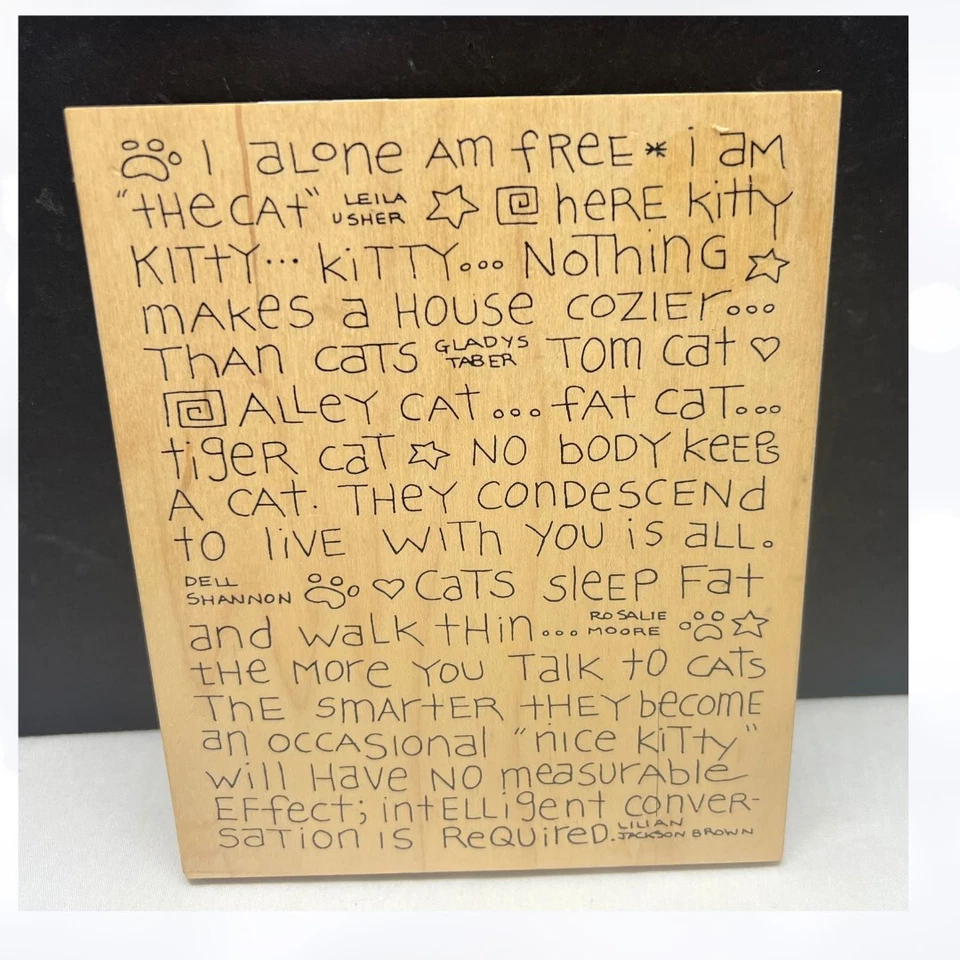 I aLone Am fRee * i aM
"tHe CAt" LEILA USHER heRE kitty
KITtY... kiTTY... NoThinG
mAkes a HoUse cozIEr...
ThAn caTS GLADYS TABER Tom cat
ALLeY CAt ... fAt caT...
tigeR caT NO boDY keeps
A CAt. THeY CoNDeSCENd
to liVE WiTh YOU iS aLL.
DELL SHANNON CaTS sleeP Fat
and waLk tHin... ROSALIE MOORE
tHe More YoU Talk tO CATs
ThE SmArtER tHEY becoME
an OCCASional "nice kiTty"
will Have NO measurAble
EFfect; intELLigent conver-
SaTion iS ReQUireD. LILIAN JACKSON BROWN